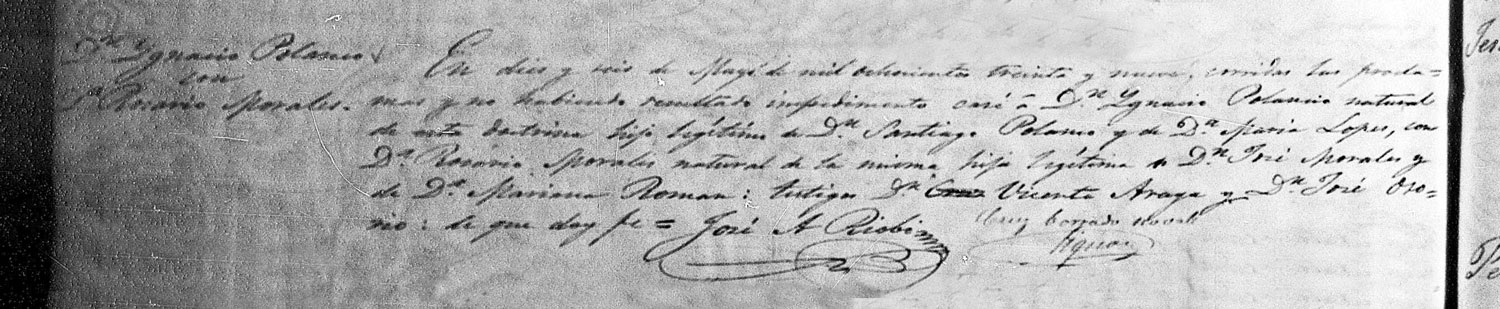 Dn. Ygnacio Polanco
con
Da. Rosario Morales.
En dies y seis de Mayo de mil ochocientos treinta y nueve, corridas las procla=
mas y no habiendo resultado impedimento casé á Dn. Ygnacio Polancio natural
de esta doctrina hijo legítimo de Dn. Santiago Polanco y de Da. Maria Lopes, con
Da. Rosário Morales natural de la misma hija legítima de Dn. José Morales y
de Da. Mariana Roman: testigos Dn. Cruz Vicente Araga y Dn. José Oso=
rio: de que doy fe = José A Riobi
Cruz borrado no vale